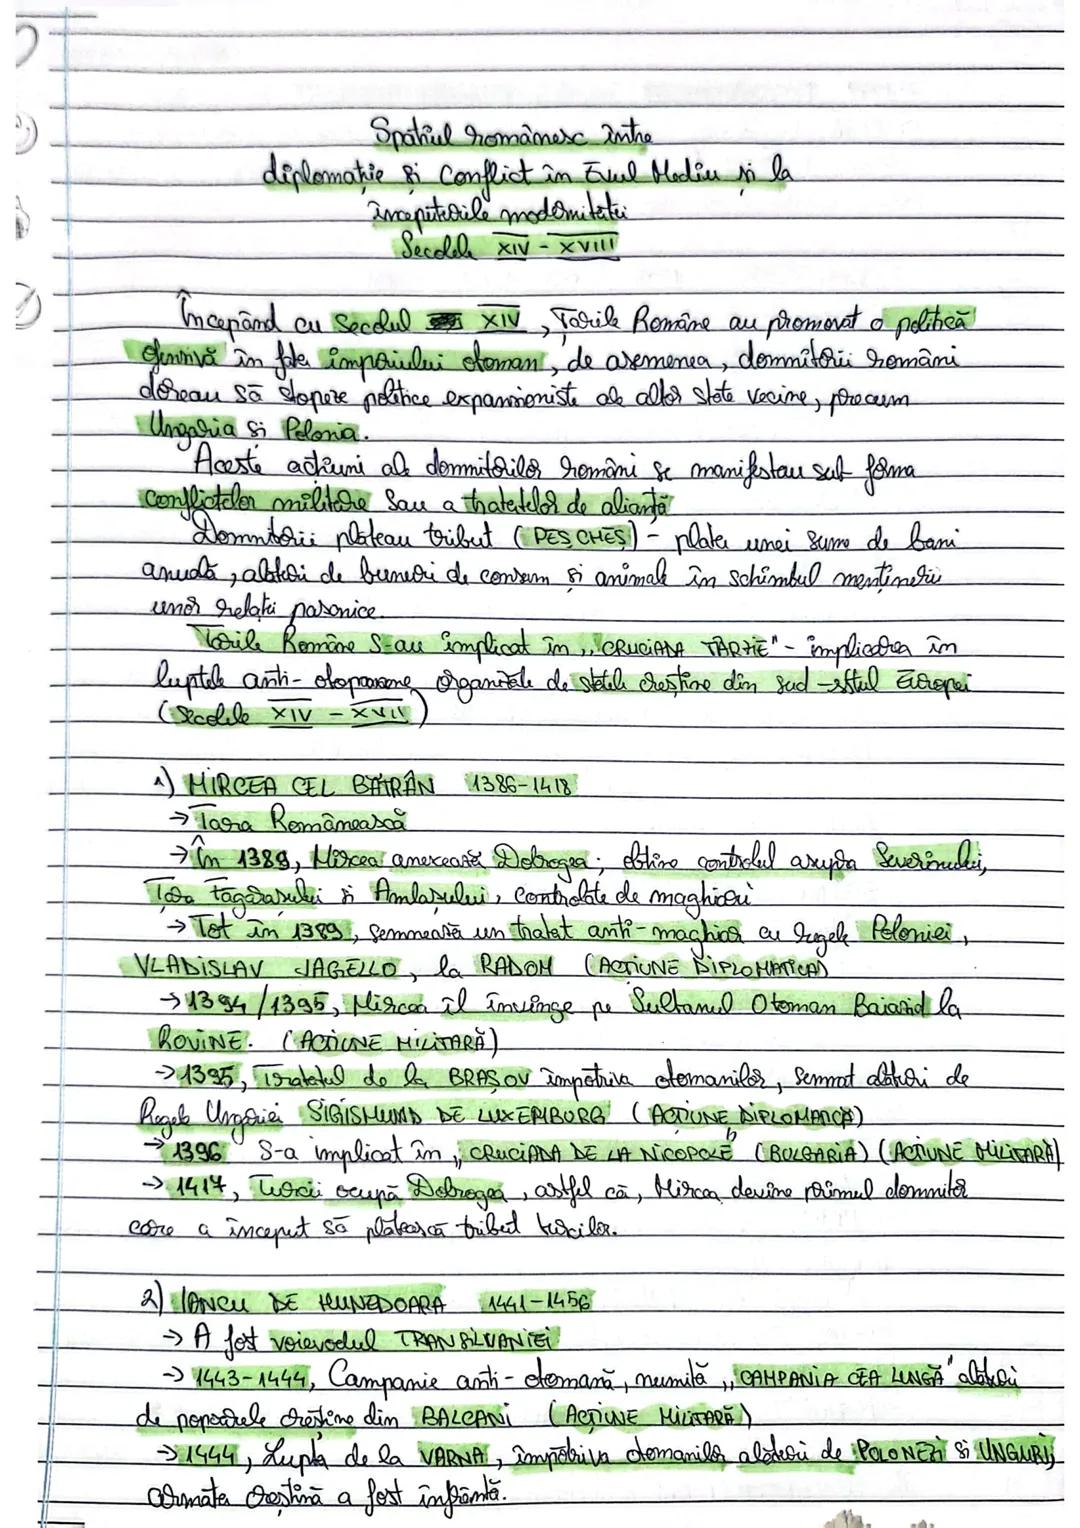 Spațiul românesc între
diplomație și Conflict în Evul Mediu și la
începuturile modernității
Secolele XIV - XVIII
Începând cu Secolul XIV, Țările Române au promovat o politică
în fața imperiului otoman, de asemenea, domnitorii români
doreau să stopeze politice expansioniste ale altor state vecine, precum
Ungaria si Polonia.
Aceste acțiuni ale domnitorilor români se manifestau sub forma
conflictelor militare sau a tratatelor de alianță
Domnitorii plăteau tribut (PEȘCHEȘ) - plata unei sume de bani
anuală, alături de bunuri de consum și animale în schimbul menținerii
unor relații pasnice.
Țările Române s-au implicat în ,,CRUCIADA TÂRZIE" - implicarea în
luptele anti-otomane organizate de statele creștine din sud-estul Europei
(Secolele XIV - XVII)
1) MIRCEA CEL BĂTRÂN 1386-1418
→ Țara Românească
→ În 1389, Mircea anexează Dobrogea; obține controlul asupra Severinului,
Țara Făgărașului și Amlașului, controlate de maghiari
→ Tot în 1389, semnează un tratat anti-maghiar cu regele Poloniei,
VLADISLAV JAGELLO, la RADOM (ACȚIUNE DIPLOMATICĂ)
→ 1394/1395, Mircea îl învinge pe Sultanul Otoman Baiazid la
ROVINE. (ACȚIUNE MILITARĂ)
→ 1395, Tratatul de la BRAȘOV împotriva otomanilor, semnat alături de
Regele Ungariei SIGISMUND DE LUXEMBURG (ACȚIUNE DIPLOMATICĂ)
→ 1396 S-a implicat în ,,CRUCIADA DE LA NICOPOLE" (BULGARIA) (ACȚIUNE MILITARĂ)
→ 1417, Turcii ocupă Dobrogea, astfel că, Mircea devine primul domnitor
care a început să plătească tribut turcilor.
2) IANCU DE HUNEDOARA 1441-1456
→ A fost voievodul TRANSILVANIEI
→ 1443-1444, Campanie anti-otomană, numită ,,CAMPANIA CEA LUNGĂ" alături
de popoarele creștine din BALCANI (ACȚIUNE MILITARĂ)
→ 1444, Lupta de la VARNA, împotriva otomanilor alături de POLONEZI SI UNGURI,
armata creștină a fost înfrântă.